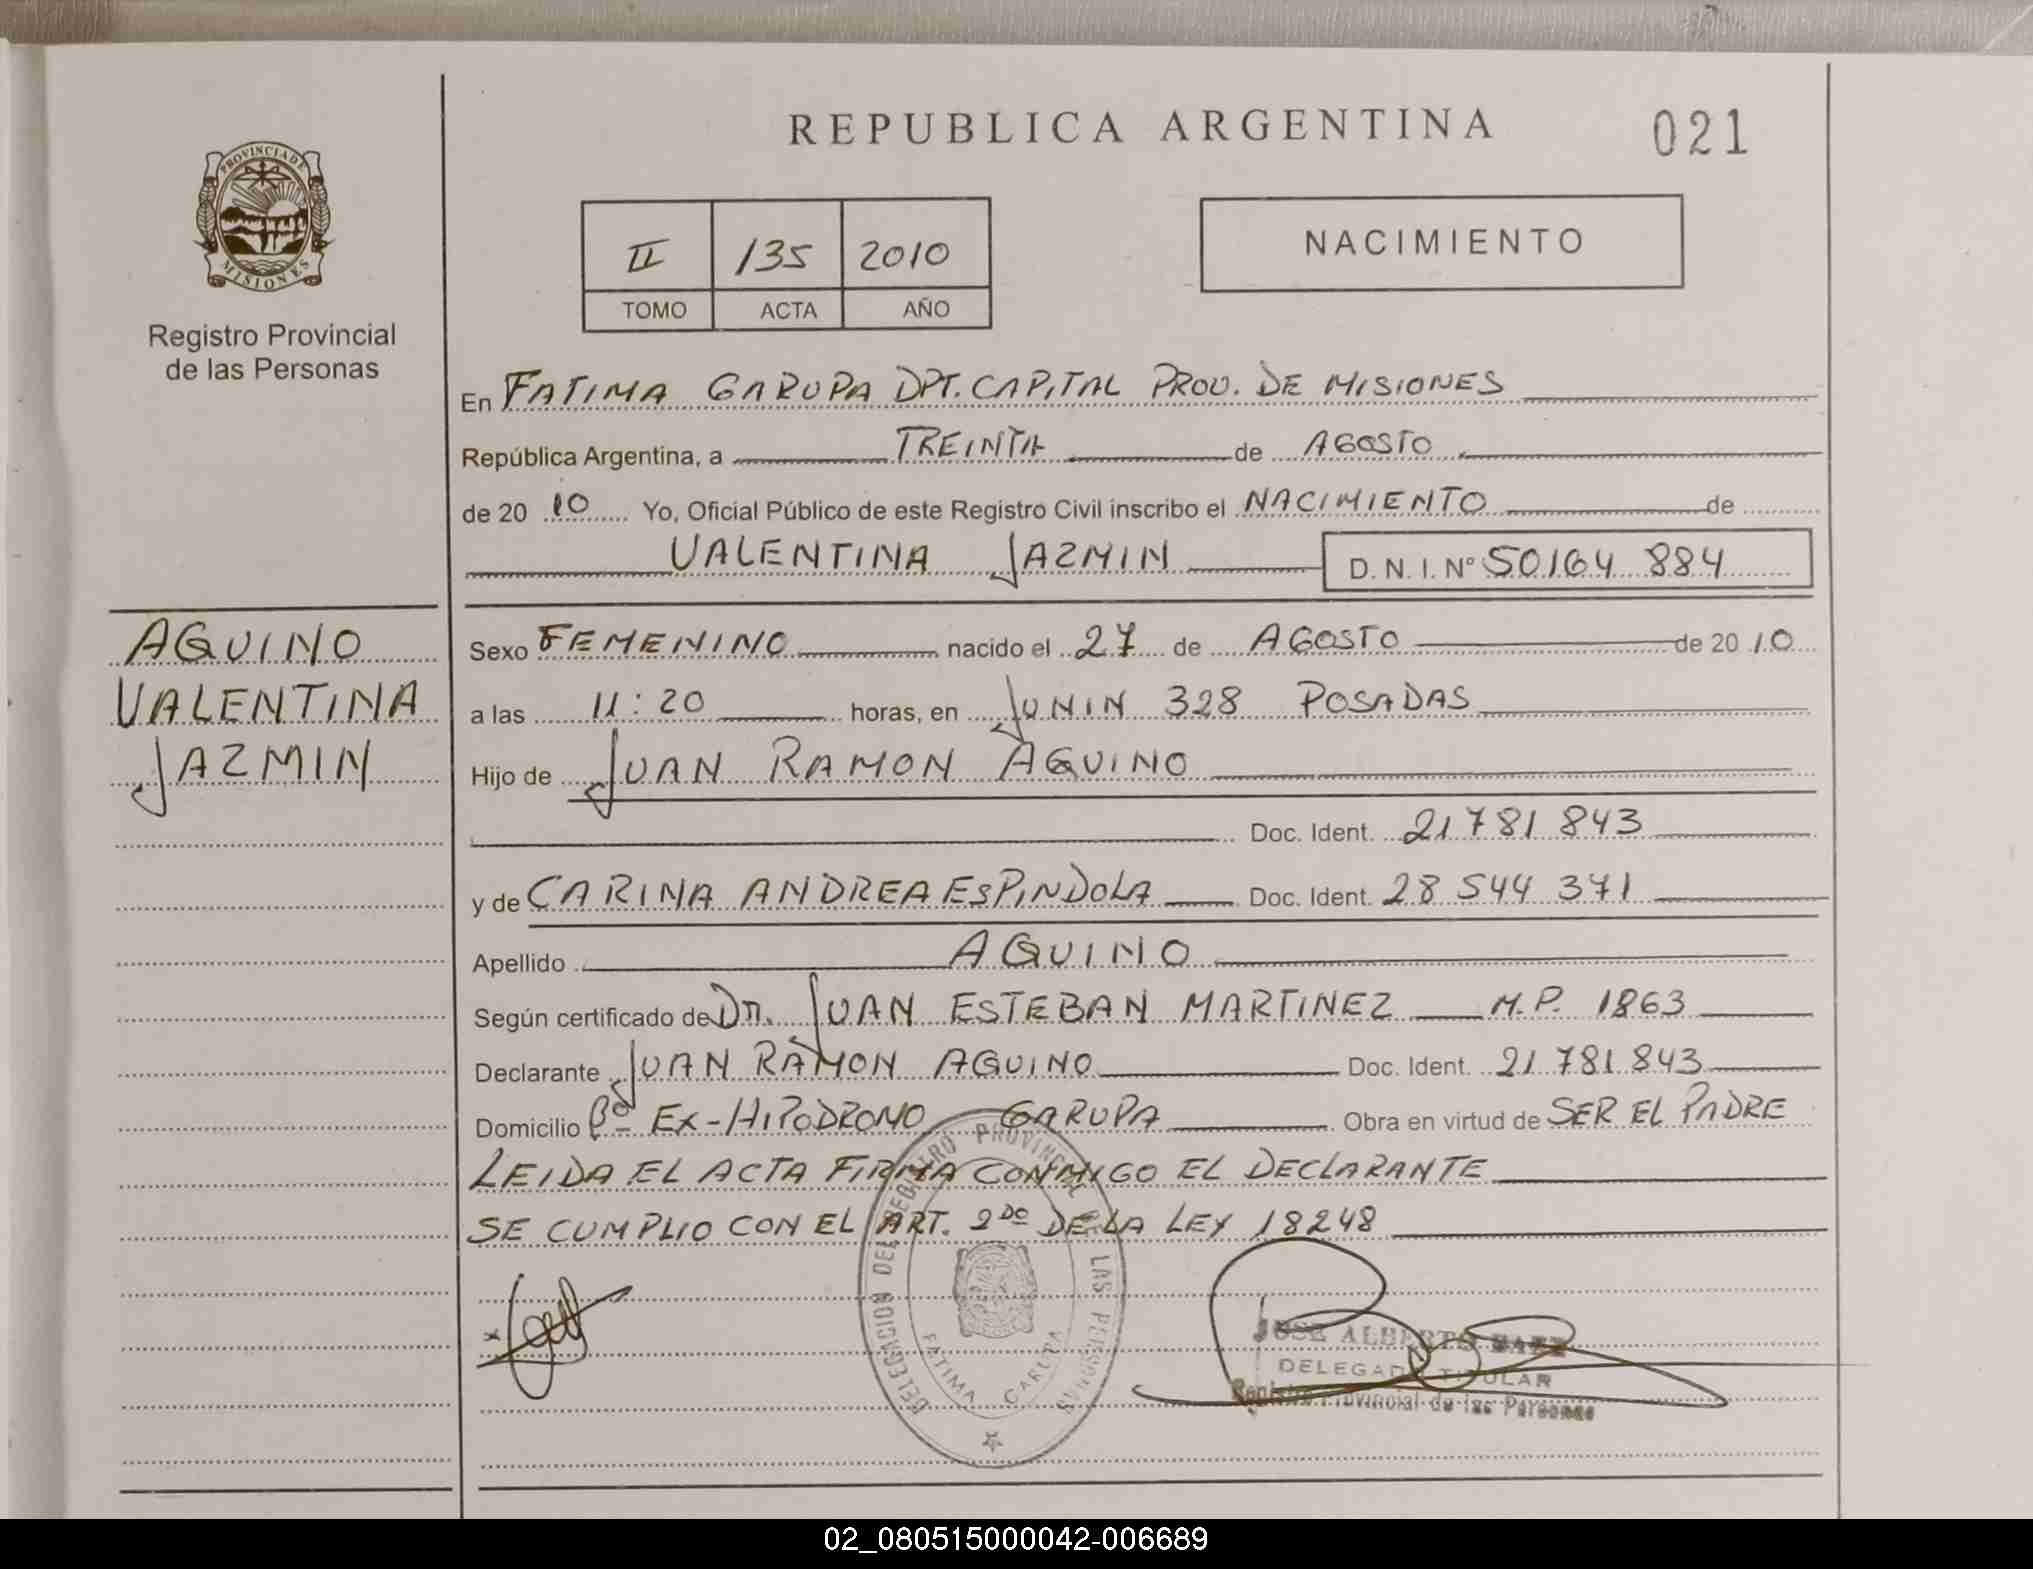 REPUBLICA ARGENTINA
021
PROVINCIA DE
MISIONES
Registro Provincial
de las Personas
II 135 2010
TOMO ACTA AÑO
NACIMIENTO
En FATIMA GARUPA DPT. CAPITAL PROV. DE MISIONES
República Argentina, a TREINTA de AGOSTO
de 20 10 Yo, Oficial Público de este Registro Civil inscribo el NACIMIENTO de
VALENTINA JAZMIN D. N. I. Nº 50164 884
AQUINO
VALENTINA
JAZMIN
Sexo FEMENINO nacido el 27 de AGOSTO de 20 10
a las 11:20 horas, en JUNIN 328 POSADAS
Hijo de JUAN RAMON AQUINO
Doc. Ident. 21 781 843
y de CARINA ANDREA ESPINDOLA Doc. Ident. 28 544 371
Apellido AQUINO
Según certificado de Dr. JUAN ESTEBAN MARTINEZ M.P. 1863
Declarante JUAN RAMON AQUINO Doc. Ident. 21 781 843
Domicilio Bº EX-HIPODROMO GARUPA Obra en virtud de SER EL PADRE
LEIDA EL ACTA FIRMA CONMIGO EL DECLARANTE
SE CUMPLIO CON EL ART. 2DO DE LA LEY 18248
DELEGACION DEL REGISTRO PROVINCIAL DE LAS PERSONAS
FATIMA GARUPA
JOSE ALBERTO BAEZ
DELEGADO TITULAR
Registro Provincial de las Personas
02_080515000042-006689